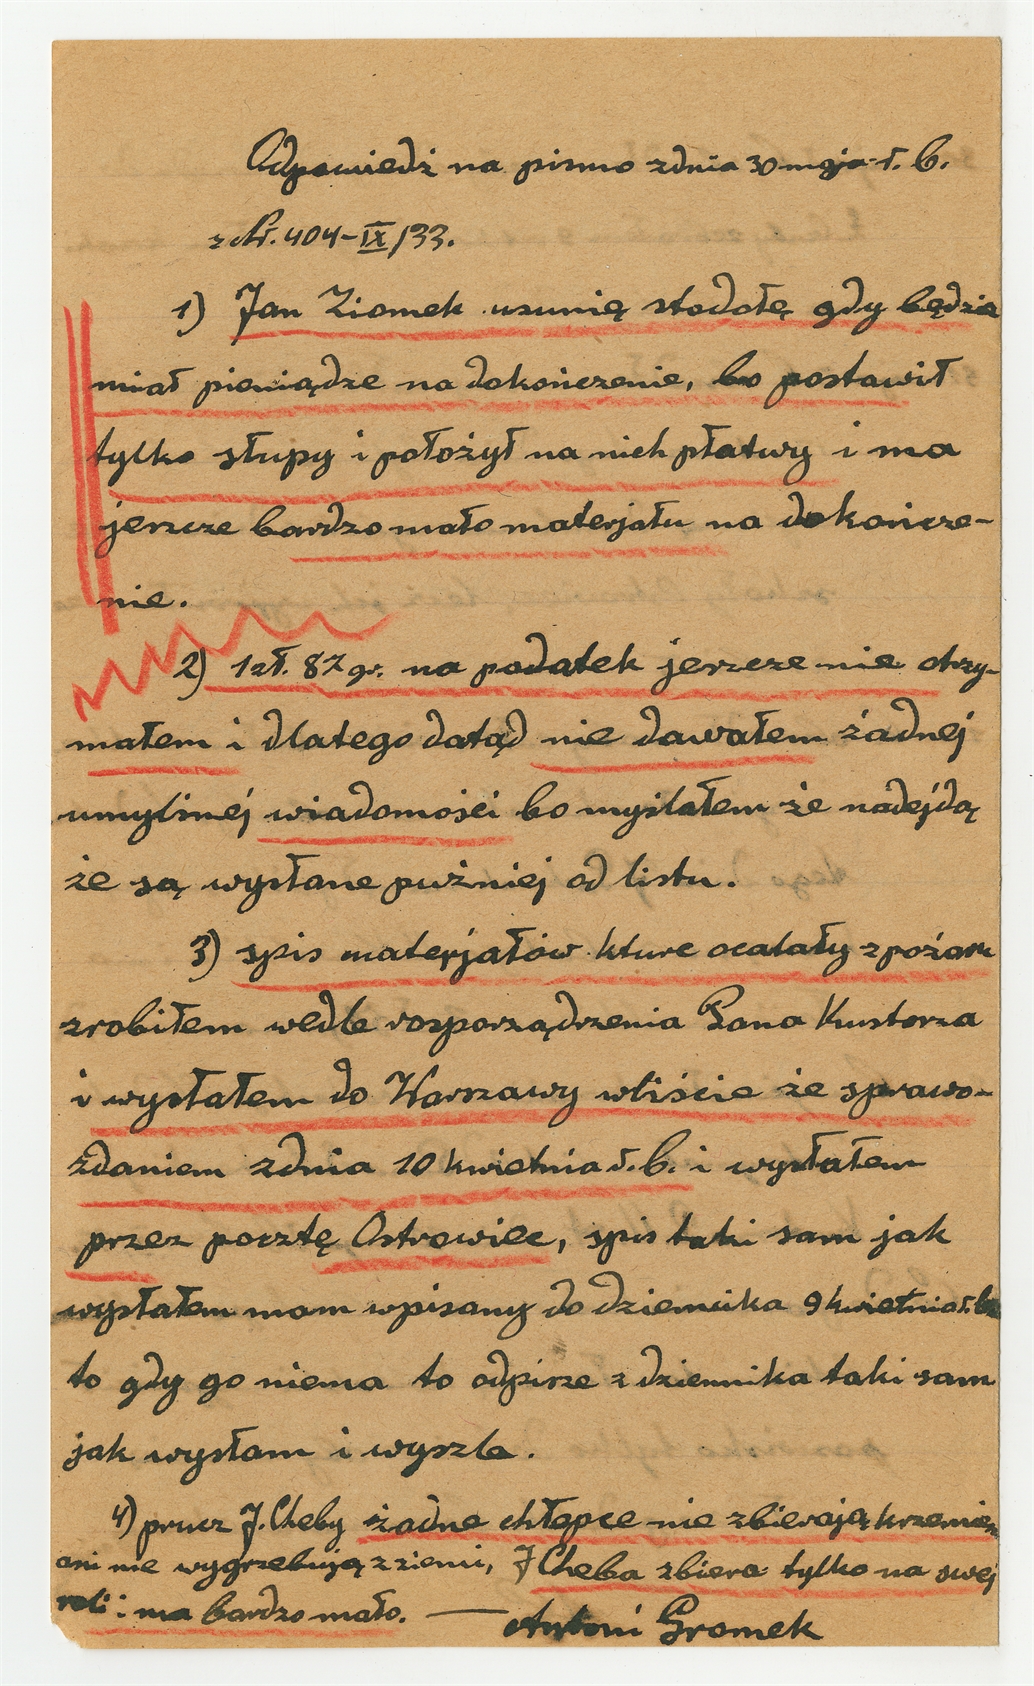 Odpowiedź na pismo zdnia 30 maja r. b.
z Nr. 404-IX/33.
1) Jan Ziomek usunię stodołę gdy będzie
miał pieniądze na dokończenie, bo postawił
tylko słupy i położył na nich płatwy i ma
jerzcze bardzo mało materjału na dokończe-
nie.
2) 1 zł. 87 gr. na podatek jerzcze nie otrzy-
małem i dlatego dotąd nie dawałem żadnej
umyślnej wiadomości bo myślałem że nadejdą
że są wysłane puźniej od listu.
3) spis materjałów kture ocalały z pożaru
zrobiłem wedle rosporządzenia Pana Kustorza
i wysłałem do Warszawy wliście że sprawo-
zdaniem zdnia 10 kwietnia r. b. i wysłałem
przez pocztę Ostrowiec, spis taki sam jak
wysłałem mam wpisany do dziennika 9 kwietnia r. b.
to gdy go niema to odpisze z dziennika taki sam
jak wysłam i wyszle.
4) prucz J. Cheby żadne chłopce nie zbierają krzemien,
ani nie wygrzebują z ziemi, J Cheba zbiera tylko na swej
roli i ma bardzo mało. — Antoni Gromek